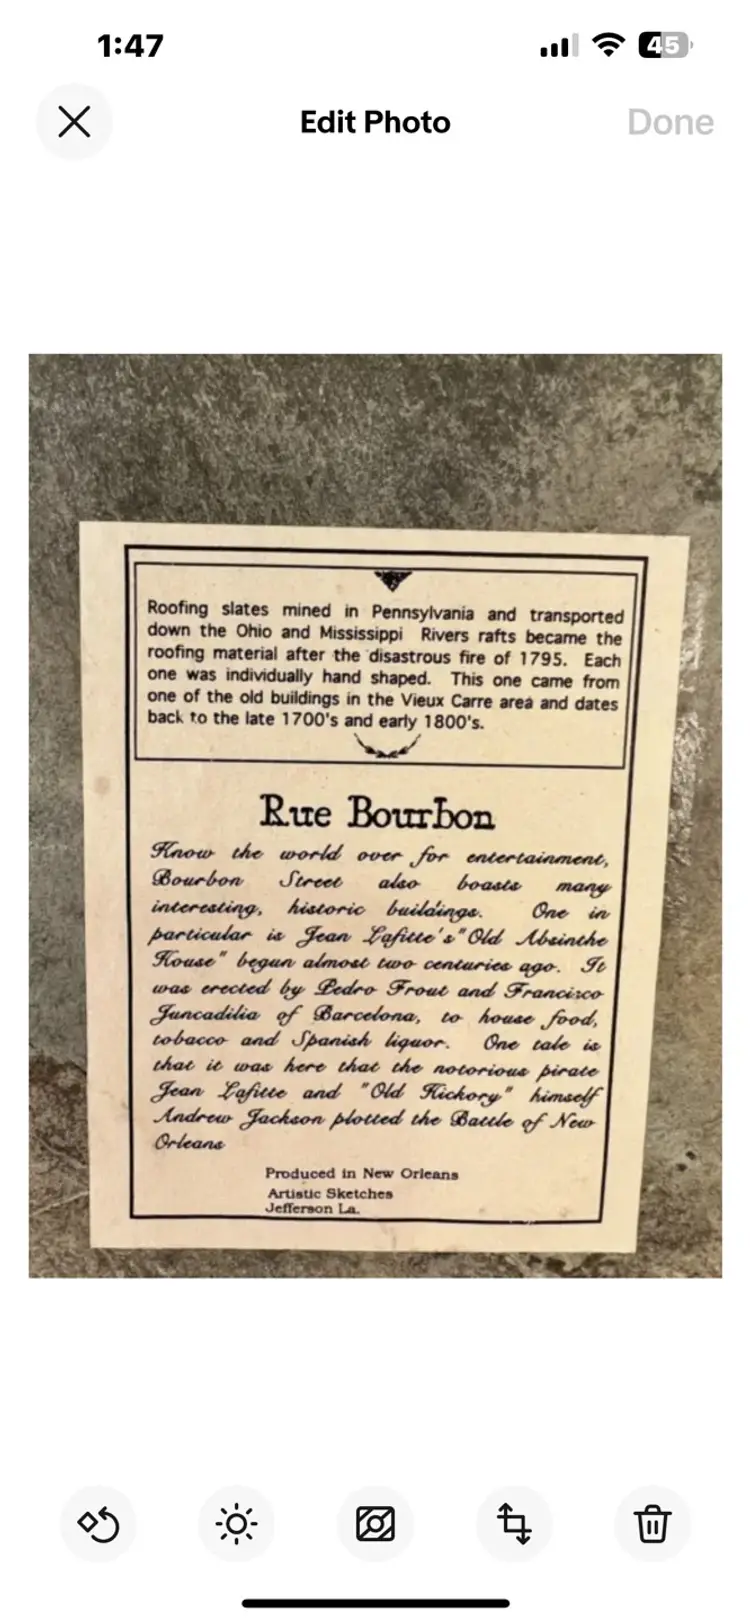 1:47
45
Edit Photo
Done
Roofing slates mined in Pennsylvania and transported
down the Ohio and Mississippi Rivers rafts became the
roofing material after the disastrous fire of 1795. Each
one was individually hand shaped. This one came from
one of the old buildings in the Vieux Carre area and dates
back to the late 1700's and early 1800's.
Rue Bourbon
Know the world over for entertainment,
Bourbon Street also boasts many
interesting, historic buildings. One in
particular is Jean Lafitte's "Old Absinthe
House" begun almost two centuries ago. It
was erected by Pedro Front and Francisco
Juncadilia of Barcelona, to house food,
tobacco and Spanish liquor. One tale is
that it was here that the notorious pirate
Jean Lafitte and "Old Hickory" himself
Andrew Jackson plotted the Battle of New
Orleans
Produced in New Orleans
Artistic Sketches
Jefferson La.